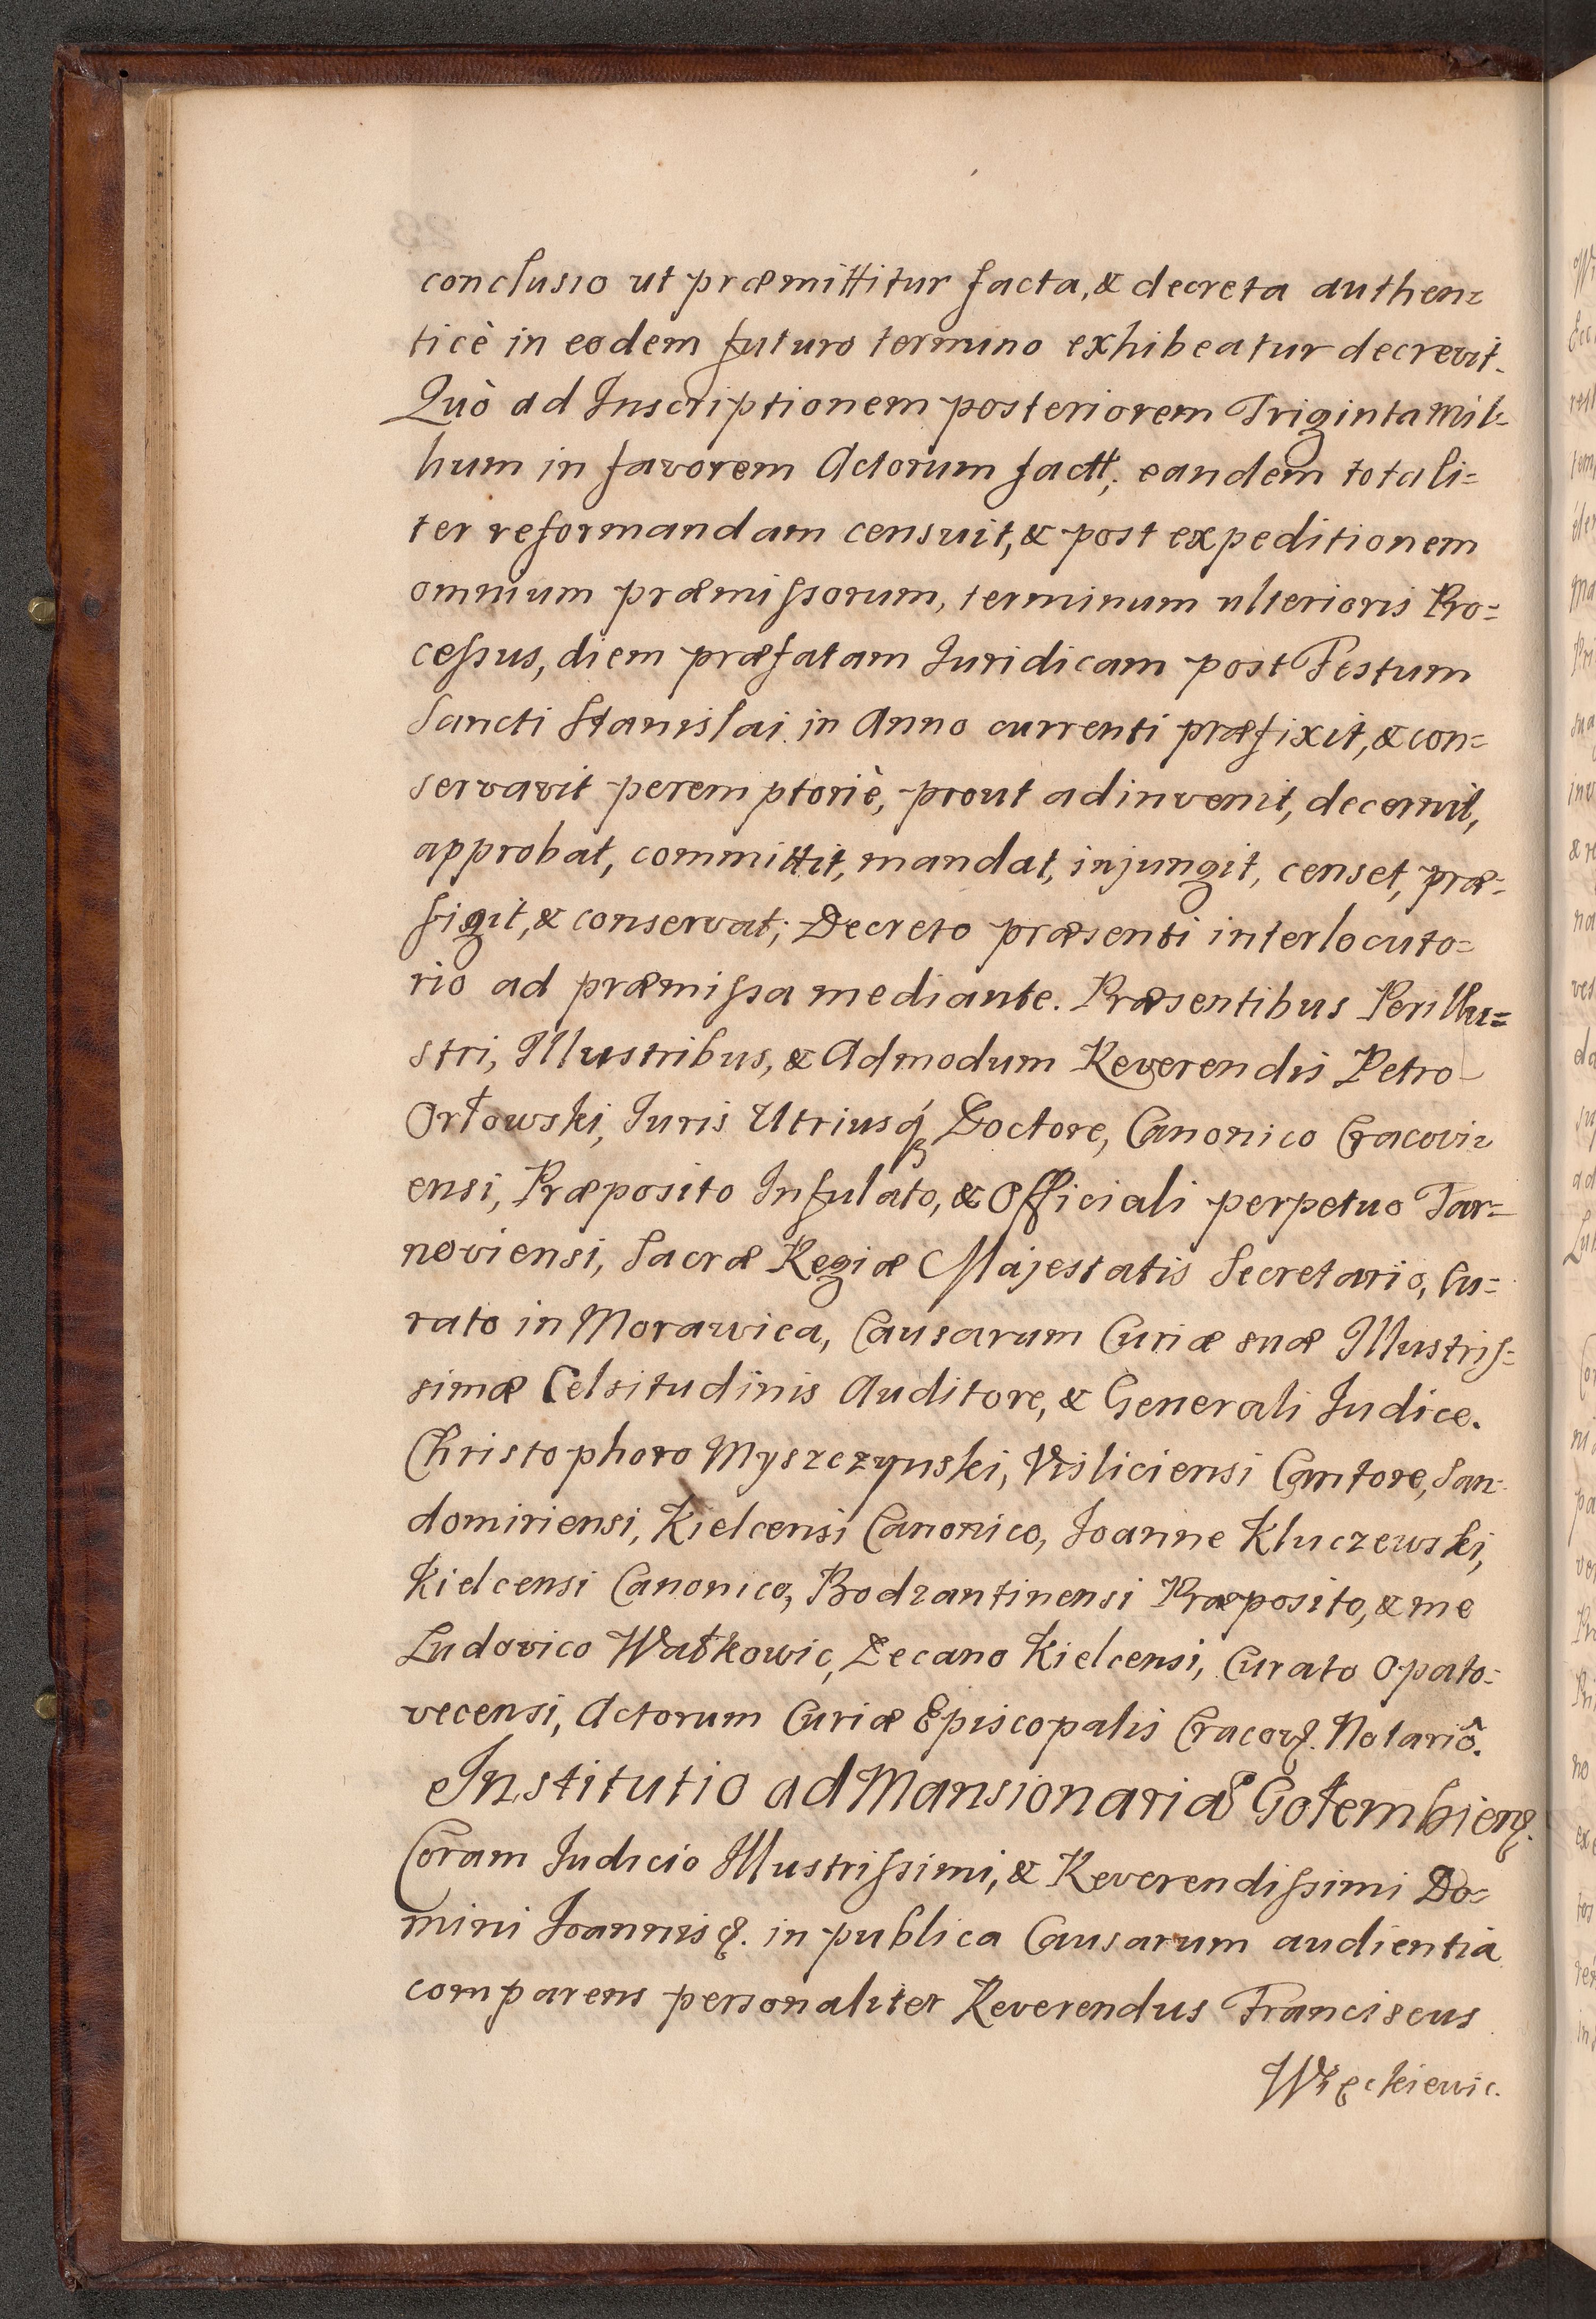 conclusio ut præmittitur facta, & decreta authen=
ticè in eodem futuro termino exhibeatur decrevit.
Quò ad Inscriptionem posteriorem Triginta Mil=
lium in favorem Actorum fact̃, eandem totali=
ter reformandam censuit, & post expeditionem
omnium præmissorum, terminum ulterioris Pro=
cessus, diem præfatam Iuridicam post Festum
Sancti Stanislai in Anno currenti præfixit, & con=
servavit peremptoriè, prout adinvenit, decernit,
approbat, committit, mandat, injungit, censet, præ=
figit, & conservat; Decreto præsenti interlocuto=
rio ad præmissa mediante. Præsentibus Perillu=
stri, Illustribus, & Admodum Reverendis Petro
Orłowski, Iuris Utriusq́ꝫ Doctore, Canonico Cracovi=
ensi, Præposito Infulato, & Officiali perpetuo Tar=
noviensi, Sacræ Regiæ Majestatis Secretario, Cu=
rato in Morawica, Causarum Curiæ suæ Illustris=
simæ Celsitudinis Auditore, & Generali Iudice.
Christophoro Myszczynski, Visliciensi Cantore, San=
domiriensi, Kielcensi Canonico, Ioanne Kluczewski,
Kielcensi Canonico, Bodzantinensi Præposito, & me
Ludovico Wałkowic, Decano Kielcensi, Curato Opato=
vecensi, Actorum Curiæ Episcopalis Cracoꝟ. Notariô.
Institutio ad Mansionariã Gołembieñ.
Coram Iudicio Illustrissimi, & Reverendissimi Do=
mini Ioannis &. in publica Causarum audientia
comparens personaliter Reverendus Franciscus
Więckiewic.